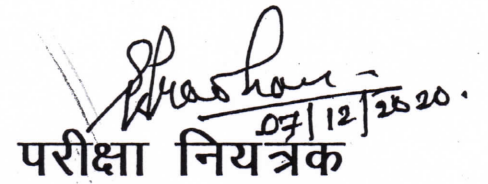 07/12/2020.
परीक्षा नियंत्रक